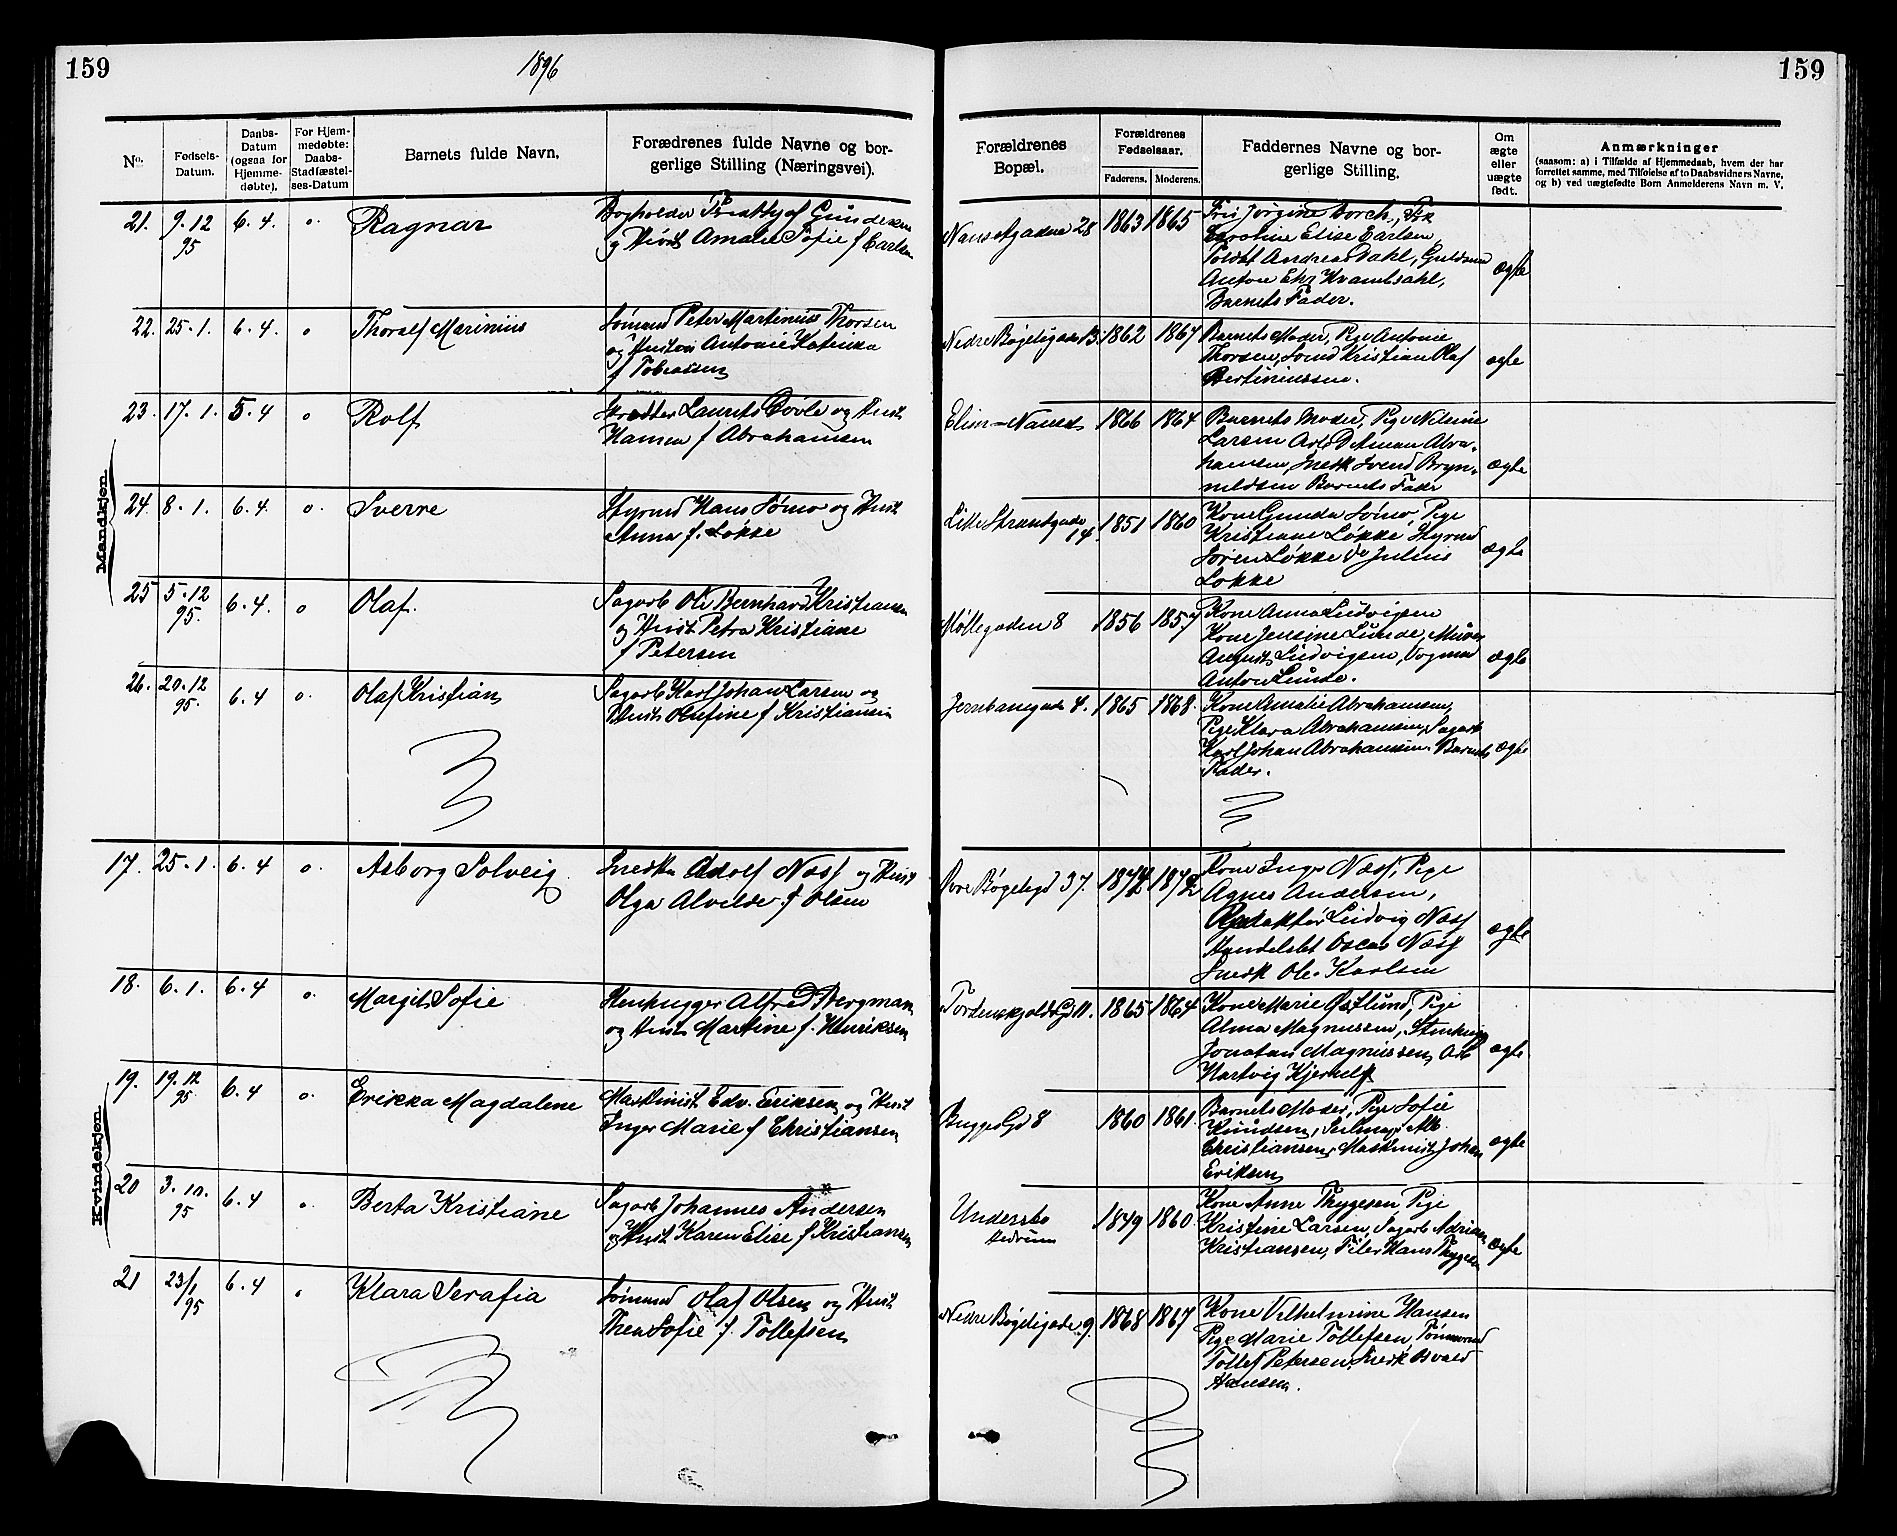 159
1896
159
No.
Fødsels-
Datum.
Daabs-
Datum
(ogsaa for
Hjemme-
døbte).
For Hjem-
medøbte:
Daabs-
Stadfæstel-
ses-Datum
Barnets fulde Navn.
Forældrenes fulde Navne og bor-
gerlige Stilling (Næringsvei).
Forældrenes
Bopæl.
Forældrenes
Fødselsaar.
Faderens. Moderens.
Faddernes Navne og bor-
gerlige Stilling.
Om
ægte
eller
uægte
født.
Anmærkninger
(saasom: a) i Tilfælde af Hjemmedaab, hvem der har
forrettet samme, med Tilføielse af to Daabsvidners Navne,
og b) ved uægtefødte Børn Anmelderens Navn m. V.
Mandkjøn
21. 9.12 95 6.4. o. Ragnar
Bogholder Gundersen
og Hust Amalie Sofie f Carlsen
Nansetgaden 28 1863 1865
Frk Jørgine Borch, Frk
Caroline Elise Carlsen
Andreas Dahl,
Anton
Barnets Fader.
ægte
22. 25.1. 6.4. o Thoralf Marinius
Sømand Peter Martinius Thorsen
og Hustru Antonie Katinka
f Tobiassen
Nedre Bøgeligade 13. 1862 1867
Barnets Moder, Pige Antonie
Thorsen, Sømd Kristian Olaf
Bertiniussen.
ægte
23. 17.1. 5.4 o Rolf
Laurits og Hust
Hansen f Abrahamsen
Elim - Nanset 1866 1864
Barnets Moder, Pige Nilsine
Larsen Arb Abra-
hamsen, Snedk Svend Bryn-
nildsen Barnets Fader
ægte
24. 8.1. 6.4. o. Sverre
Styrmd Hans Sømo og Hust
Anna f. Løkke
Lille Strandgade
14. 1851 1860
Kone Gunda Sømo, Pige
Kristiane Løkke Styrmd
Søren Løkke Do Julius
Løkke
ægte
25 5.12 95. 6.4. o Olaf.
Sagarb Ole Bernhard Kristiansen
og Hust Petra Kristiane
f Petersen
Møllegaden 8 1856 1857
Kone Anna Ludvigsen
Kone Jensine Lunde, Murer
August Ludvigsen, Vognmd
Anton Lunde.
ægte
26. 20.12 95. 6.4 o. Olaf Kristian
Sagarb Karl Johan Larsen og
Hust Olufine f Kristiansen
Jernbanegade 4. 1865 1868.
Kone Amalie Abrahamsen,
Pige Klara Abrahamsen, Sagarb
Karl Johan Abrahamsen. Barnets
Fader.
ægte
Kvindekjøn
17. 25.1. 6.4 o. Asborg Solveig
Snedker Adolf Næss og Hust
Olga Alvilde f Olsen
Øvre Bøgeligd 37. 1872 1872
Kone Inger Næss, Pige
Agnes Andersen,
Redaktør Ludvig Næss
Handelsbt Oscar Næss
Snedk Ole Karlsen
ægte
18. 6.1. 6.4 o. Margit Sofie
Stenhugger Alfred Bergman
og Hust Martine f. Henriksen
Tordenskjolds Gd 11. 1865 1864
Kone Marie Østlund, Pige
Alma Magnussen, Stenhugger
Jonatan Magnussen, Arb
Hartvig Kjerulf
ægte
19. 19.12 95. 6.4 o. Erikka Magdalene
Maskinist Edv. Eriksen og Hust
Inger Marie f Christiansen
Bugges Gd 8 1860 1861.
Barnets Moder, Pige Sofie
Knudsen,
Christiansen, Maskinist Johan
Eriksen
ægte
20 3.10. 95 6.4 o. Berta Kristiane
Sagarb Johannes Andersen
og Hust Karen Elise f Kristiansen
Undersbo
Hedrum 1849 1860
Kone Anne Thygesen Pige
Kristine Larsen, Sagarb Adrian
Kristiansen, Filer Hans Thygesen
ægte
21 23/1 95 6.4 o Klara Serafia
Sømand Olaf Olsen og Hust
Thea Sofie f. Tollefsen
Nedre Bøgeligade 9. 1868 1867
Kone Vilhelmine Hansen
Pige Marie Tollefsen, Tømmermd
Tollef Petersen, Snedk Osvald
Hansen.